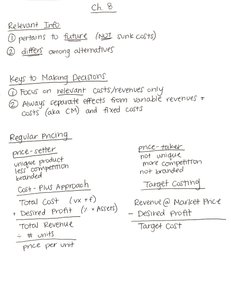 Ch. 8
Relevant Info
① pertains to future (NOT sunk costs)
② differs among alternatives
Keys to Making Decisions
① Focus on relevant costs/revenues only
② Always separate effects from variable revenues +
costs (aka CM) and fixed costs
Regular Pricing
price-setter
unique product
less competition
branded
Cost-Plus Approach
Total Cost (vx + f)
+ Desired Profit (% × Assets)
Total Revenue
÷ # units
price per unit
price-taker
not unique
more competition
not branded
Target Costing
Revenue @ Market Price
- Desired Profit
Target Cost